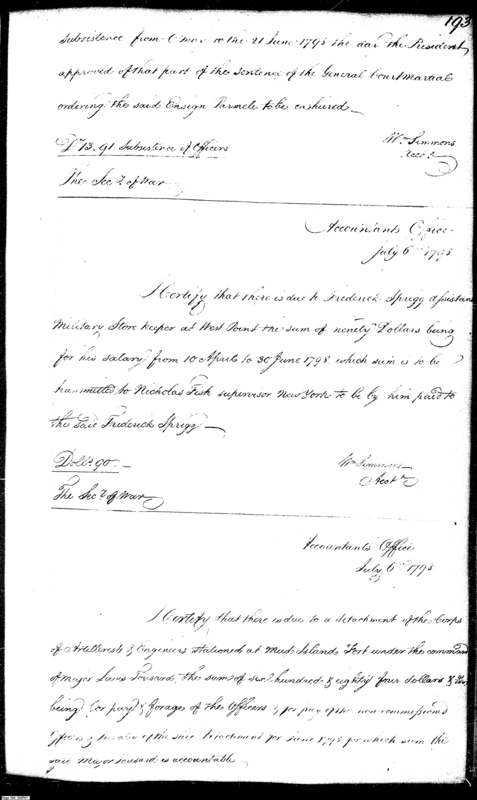 193
Subsistence from 6 May to the 21 June 1798 the day the President
approved of that part of the Sentence of the General Court Martial
ordering the said Ensign Parmele to be cashiered
Ds 73.91 Subsistence of Officers
Wm Simmons
Acct.
The Secy of War
Accountants Office
July 6th 1798
I Certify that there is due to Frederick Sprigg Assistant
Military Store keeper at West Point the sum of ninety Dollars being
for his salary from 10 April to 30 June 1798 which sum is to be
transmitted to Nicholas Fish supervisor New York to be by him paid to
the said Frederick Sprigg
Dolls 90.
Wm Simmons
Acct
The Secy of War
Accountants Office
July 6th 1798
I Certify that there is due to a detachment of the Corps
of Artillerists & Engineers stationed at Mud Island Fort under the command
of Major Lewis Tousard, the sum of six hundred & eighty four dollars &
being for pay & forage of the Officers & for pay of the non commissioned
Officers & of the said detachment for June 1798 for which sum the
said Major Tousard is accountable